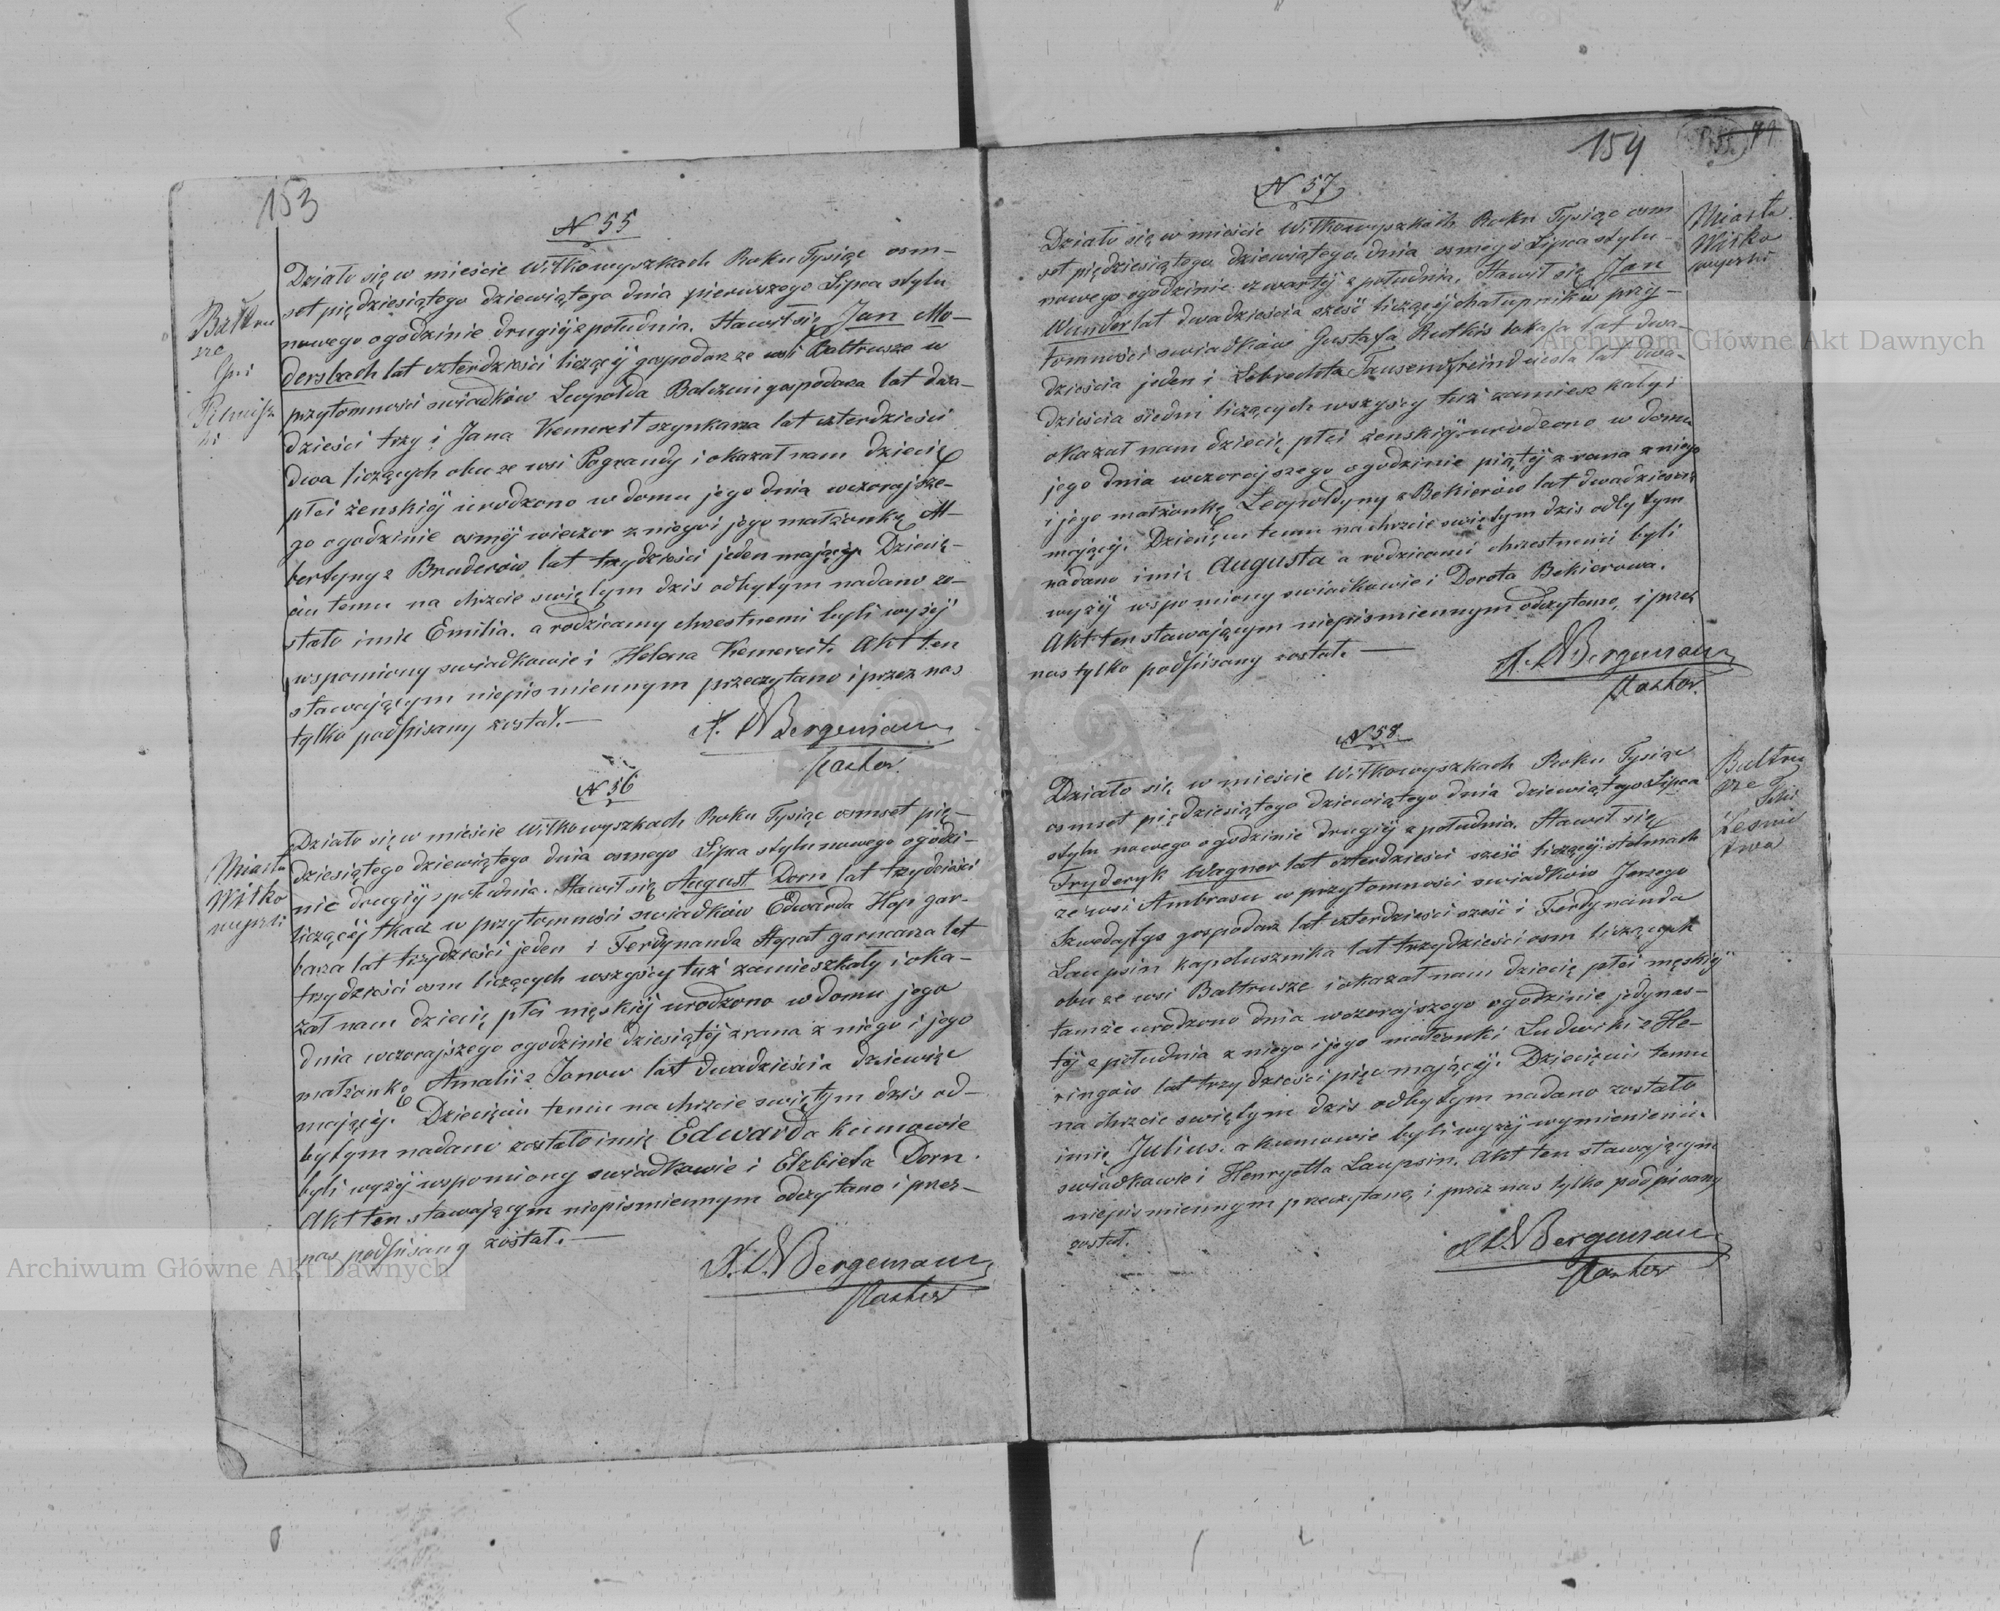 153
N 55
Działo się w mieście Wiłkowyszkach Roku Tysiąc osm-
set piędziesiątego dziewiątego dnia pierwszego Lipca stylu
nowego o godzinie drugiéj z południa. Stawił się Jan Mo-
dersbach lat czterdzieści liczący gospodarz ze wsi Bałtrusze w
przytomności swiadków Leopolda gospodarza lat dwa-
dzieści trzy i Jana Kemereit szynkarza lat czterdzieści
dwa liczących obu ze wsi Pograndy i okazał nam dziecię
płci żenskiéj urodzono w domu jego dnia wczorajsze-
go o godzinie osméj wieczor z niego i jego małżonkę Al-
bertyny z Bruderów lat trzydzieści jeden mającéj. Dziecię-
ciu temu na chrzcie swiętym dzis odbytym nadano zo-
stało imie Emilia. a rodzicamy chrzestnemi byli wyżéj
wspomiony swiadkowie i Helena Kemereit. Akt ten
stawającym niepismiennym przeczytano i przez nas
tylko podpisany został. —
Bergemann
Pastor.
Bałtru
sze
Gmi
N 56
Działo się w mieście Wiłkowyszkach Roku Tysiąc osmset pię-
dziesiątego dziewiątego dnia osmego Lipca stylu nowego o godzi-
nie drugiéj z południa. Stawił się August Dorn lat trzydzieści
liczącéj tkacz w przytomności swiadków Edwarda Hop gar-
barza lat trzydzieści jeden i Ferdynanda garncarza lat
trzydzieści osm liczących wszyscy tuż zamieszkały i oka-
zał nam dziecię płci męskiéj urodzono w domu jego
dnia wczorajszego o godzinie dziesiątéj z rana z niego i jego
małżonkę Amalii z Janow lat dwadzieścia dziewięc
mającéj. Dziecięciu temu na chrzcie swiętym dzis od-
bytym nadano zostało imię Edwarda kumowie
byli wyżéj wspomiony swiadkowie i Elzbieta Dorn.
Akt ten stawającym niepismiennym odczytano i przez-
nas podpisany został. —
Bergemann
Pastor
Miasta
Wiłko
wyszki
154
N 57
Działo się w mieście Wiłkowyszkach Roku Tysiąc osm
set piędziesiątego dziewiątego. dnia osmego Lipca stylu-
nowego o godzinie czwartéj z południa. Stawił się Jan
Wunder lat dwadzieścia sześć liczącéj chałupników przy-
tomności swiadków Gustafa Rutkis lokaja lat dwa-
dzieścia jeden i Lebrechta Tausendfreind ciesla lat dwa-
dzieścia siedm liczących wszyscy tuż zamieszkały i
okazał nam dziecię płci żenskiéj urodzono w domu
jego dnia wczorajszego o godzinie piątéj z rana z niego
i jego małżonkę Leopoldyny z Bekierów lat dwadzieścia
mającéj. Dziecięciu temu na chrzcie swiętym dzis odbytym
nadano imię Augusta a rodzicami chrzestnemi byli
wyżéj wspomiony swiadkowie i Dorota Bekierowa.
Akt ten stawającym niepismiennym odczytano, i przez
nas tylko podpisany został. —
Bergemann
Pastor.
Miasta
Wiłko
wyszki
N 58
Działo się w mieście Wiłkowyszkach Roku Tysiąc
osmset piędziesiątego dziewiątego dnia dziewiątego Lipca
stylu nowego o godzinie drugiéj z południa. Stawił się
Fryderyk Wagner lat czterdzieści sześć liczącéj stelmach
ze wsi Ambrasu w przytomności swiadków Jerzego
gospodarz lat czterdzieści sześć i Ferdynanda
Laupsin kapelusznika lat trzydzieści osm liczących
obu ze wsi Bałtrusze i okazał nam dziecię płci męskiéj
tamże urodzono dnia wczorajszego o godzinie jedynas-
téj z południa z niego i jego małżonki Ludwiki z He-
ringów lat trzydzieści pięc mającéj. Dziecięciu temu
na chrzcie swiętym dzis odbytym nadano zostało
imię Julius. a kumowie byli wyżéj wymienieni-
swiadkowie i Henryetta Laupsin. Akt ten stawającym
niepismiennym przeczytano, i przez nas tylko podpisany
został.
Bergemann
Pastor
Baltru
sze
Leśni
twa
Archiwum Główne Akt Dawnych
Archiwum Główne Akt Dawnych